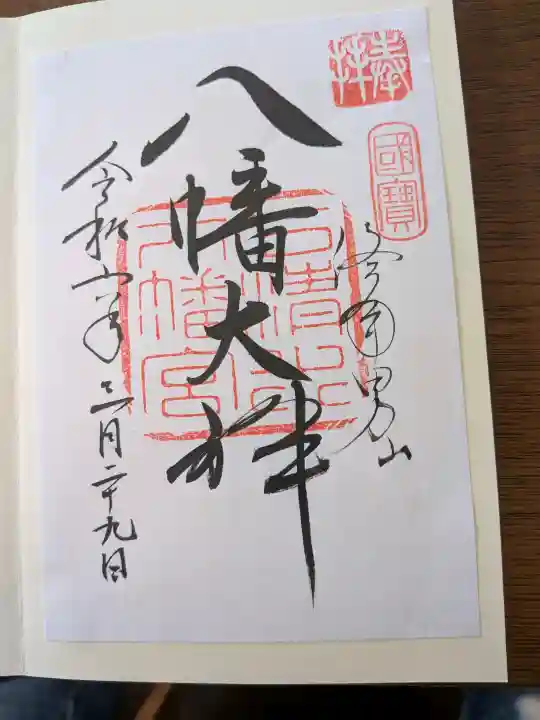 奉拝
國寶
洛南男山
八幡大神
石清水
八幡宮
令和六年三月二十九日